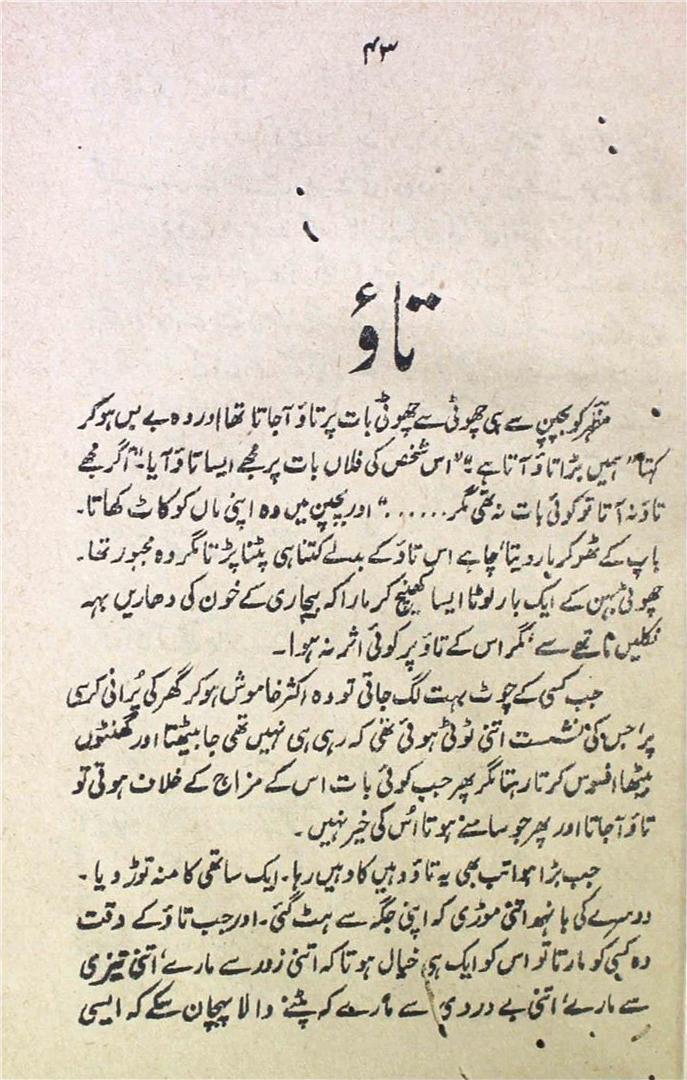 ۴۳
تاؤ
مظہر کو بچپن سے ہی چھوٹی سے چھوٹی بات پر تاؤ آجاتا تھا اور وہ بے بس ہوکر
کہتا "ہمیں بڑا تاؤ آتا ہے" "اس شخص کی فلاں بات پر مجھے ایسا تاؤ آیا۔" "اگر مجھے
تاؤ نہ آتا تو کوئی بات نہ تھی مگر ......" اور بچپن میں وہ اپنی ماں کو کاٹ کھاتا۔
باپ کے ٹھوکر مار دیتا، چاہے اس تاؤ کے بدلے کتنا ہی پٹنا پڑتا مگر وہ مجبور تھا۔
چھوٹی بہن کے ایک بار لوٹا ایسا کھینچ کر مارا کہ بیچاری کے خون کی دھاریں بہہ
نکلیں ماتھے سے، مگر اس کے تاؤ پر کوئی اثر نہ ہوا۔
جب کسی کے چوٹ بہت لگ جاتی تو وہ اکثر خاموش ہوکر گھر کی پُرانی کرسی
پر، جس کی نشست اتنی ٹوٹی ہوئی تھی کہ رہی ہی نہیں تھی جا بیٹھتا اور گھنٹوں
بیٹھا افسوس کرتا رہتا مگر پھر جب کوئی بات اس کے مزاج کے خلاف ہوتی تو
تاؤ آجاتا اور پھر جو سامنے ہوتا اُس کی خیر نہیں۔
جب بڑا ہوا تب بھی یہ تاؤ وہیں کا وہیں رہا۔ ایک ساتھی کا منہ توڑ دیا۔
دوسرے کی بانہہ اتنی موڑی کہ اپنی جگہ سے ہٹ گئی۔ اور جب تاؤ کے وقت
وہ کسی کو مارتا تو اس کو ایک ہی خیال ہوتا کہ اتنی زور سے مارے، اتنی تیزی
سے مارے، اتنی بے دردی سے مارے کہ پٹنے والا پہچان سکے کہ ایسی